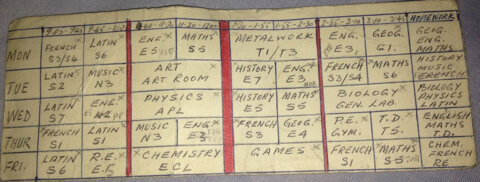 9.05-9.45 9.45-1 11-20-12.00 1.10-1.55 1.55-2.30 2.35-3.10 3.10-3.45 HOMEWORK
MON FRENCH S3/S4 LATIN S6 ENG. E5 MATHS S5 METALWORK T1/T3 ENG. E3, GEOG. G1. GEOG. ENG. MATHS
TUE LATIN S2 MUSIC N3 ART ART ROOM HISTORY E7 ENG. E3 FRENCH S3/S4 MATHS S6 HISTORY MUSIC FRENCH
WED LATIN S7 ENG. PHYSICS APL HISTORY E5 MATHS S5 BIOLOGY GEN. LAB. BIOLOGY PHYSICS LATIN
THUR FRENCH S1 LATIN S1 MUSIC N3 ENG. FRENCH S3 GEOG. E4 P.E. GYM. T.D. T5. ENGLISH MATHS T.D.
FRI. LATIN S6 R.E. CHEMISTRY ECL GAMES FRENCH S1 MATHS S5 CHEM. FRENCH RE